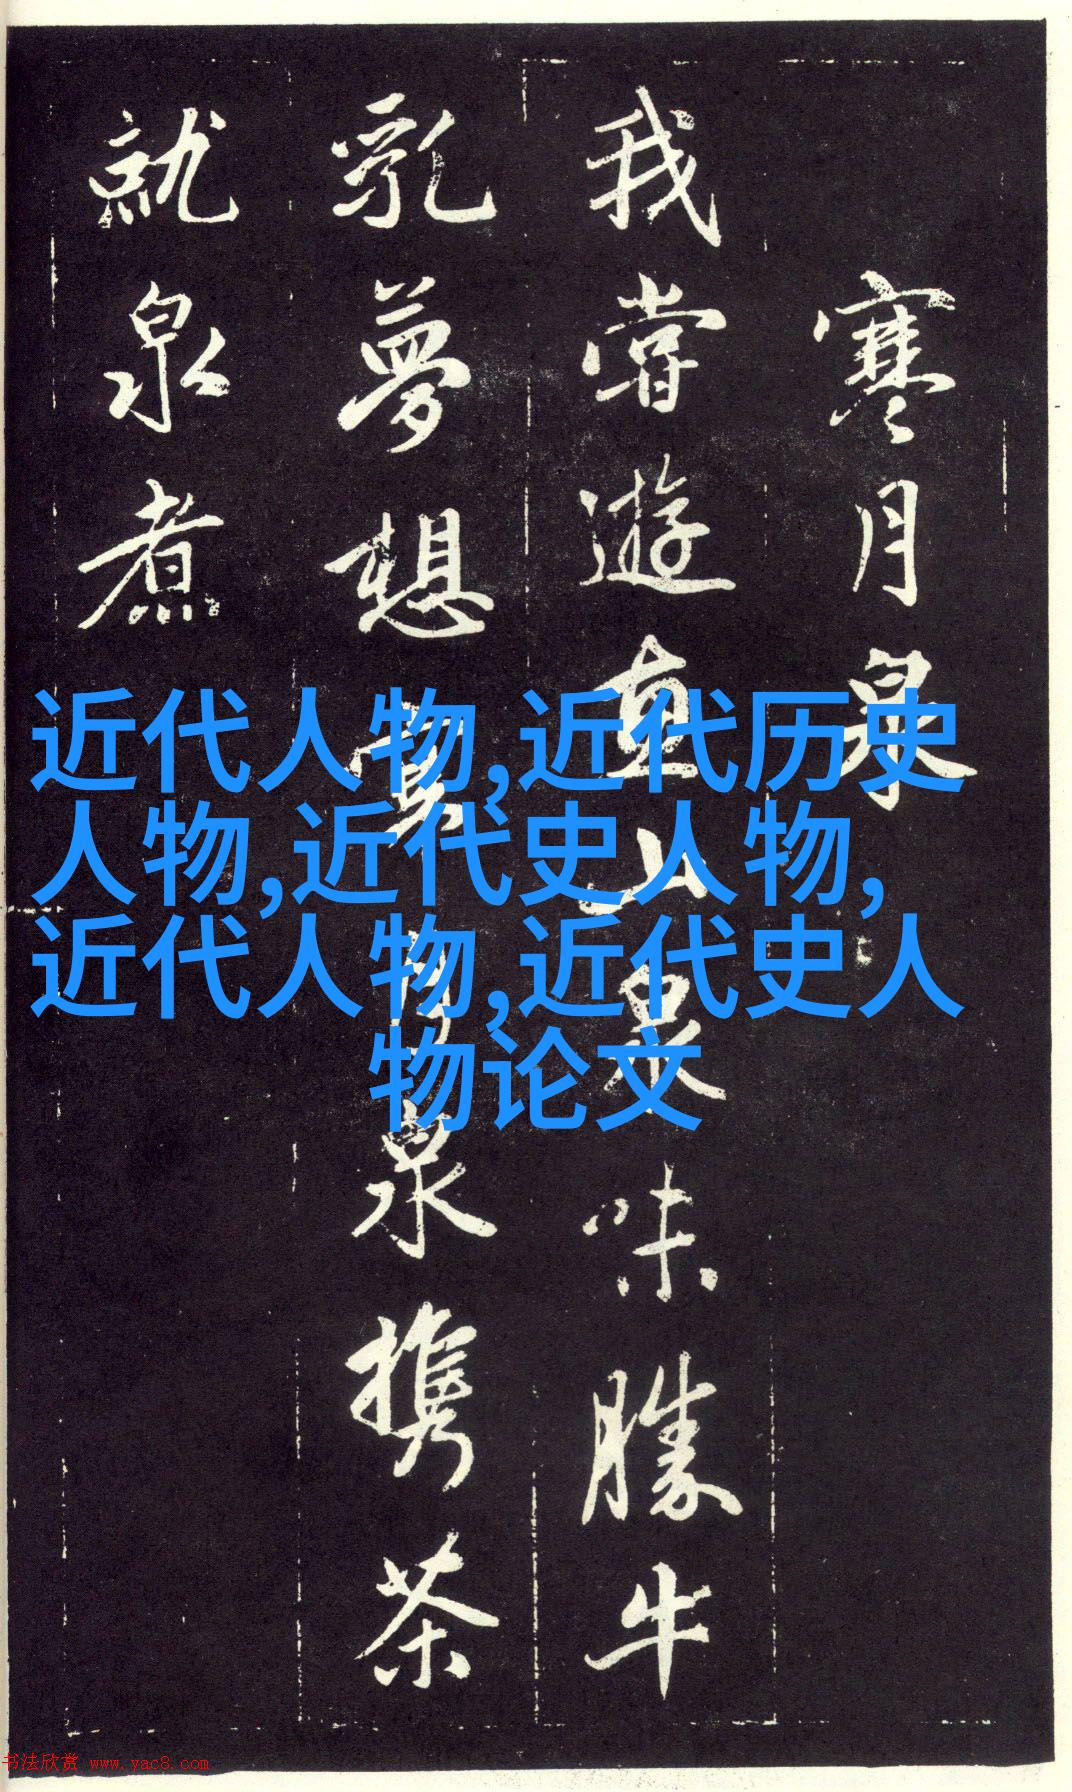 寒月泉
我嘗遊惠山泉味勝牛
乳夢想寒月泉携茶
就泉煮
近代人物,近代历史
人物,近代史人物,
近代人物,近代史人
物论文
书法欣赏 www.yac8.com